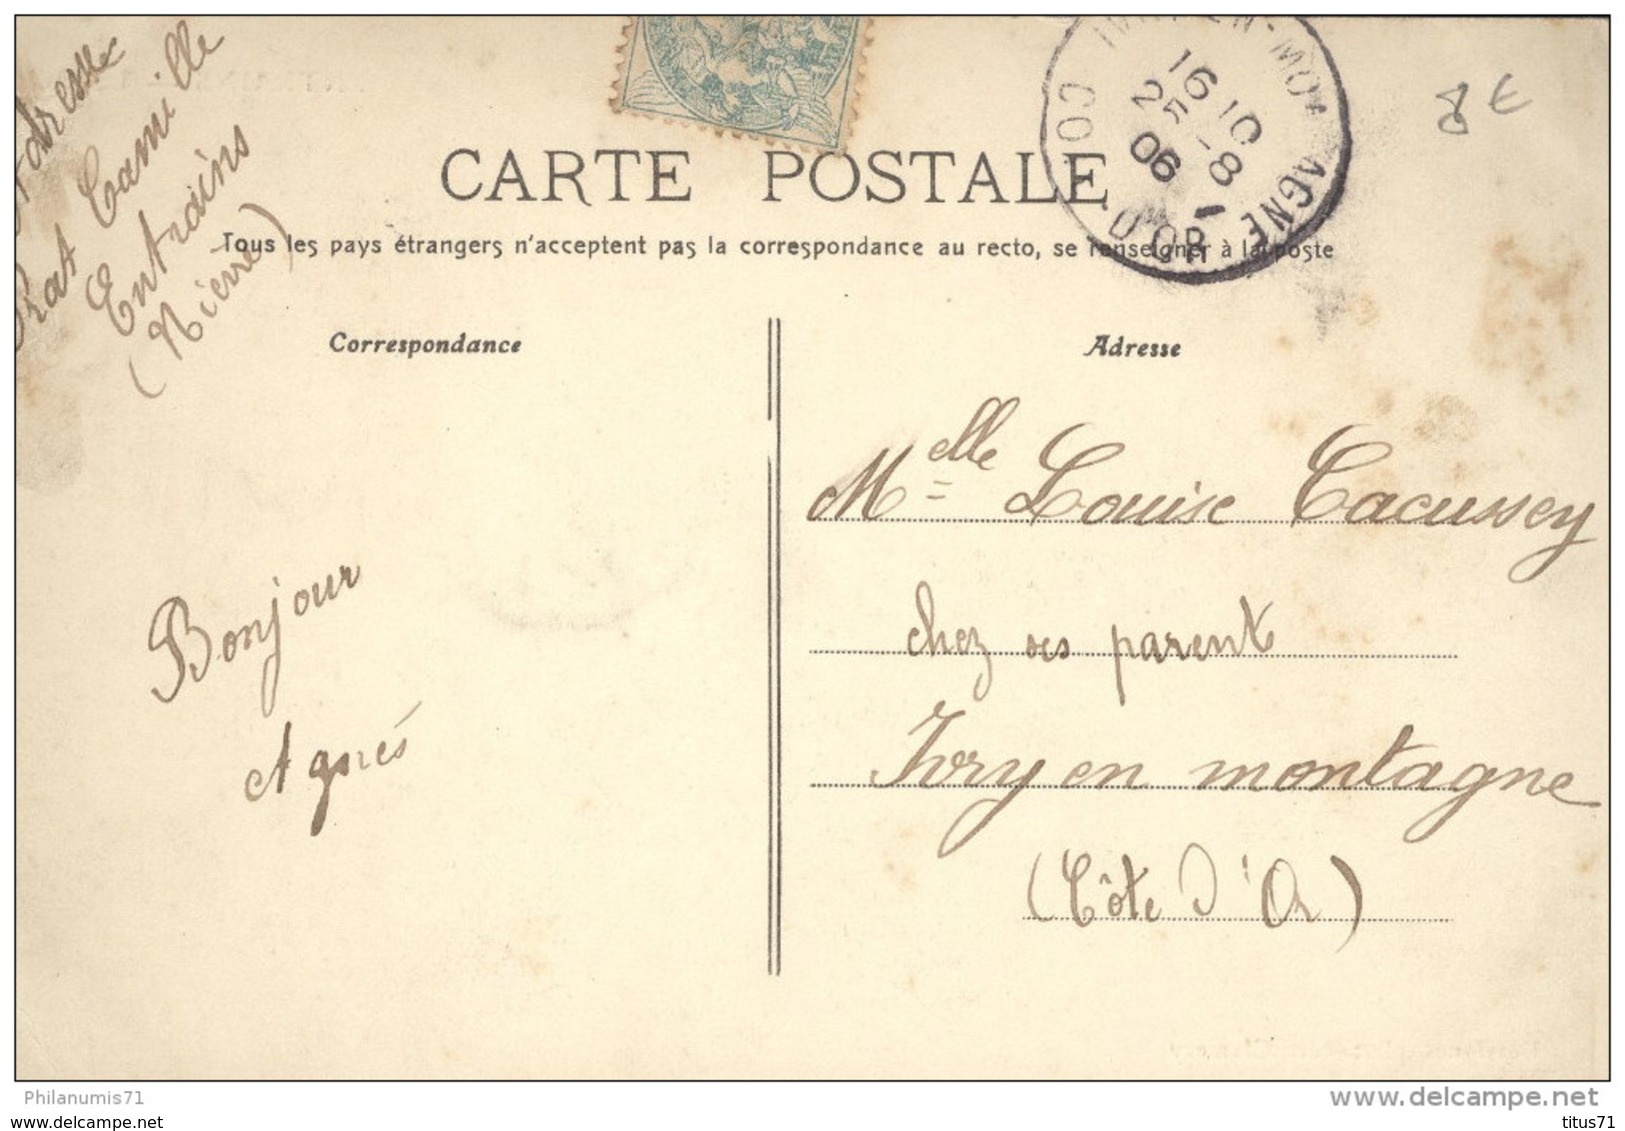 Adresse
Prat Camille
Entrains
(Nièvre)
8€
16 10
25 -8
06
AGNE
CO
D'OR
CARTE POSTALE
Tous les pays étrangers n'acceptent pas la correspondance au recto, se renseigner à la poste
Correspondance
Adresse
Bonjour
Agnés
Melle Louise Cacussey
chez ses parents
Ivry en montagne
(Côte d'Or)
Philanumis71
www.delcampe.net
www.delcampe.net
titus71